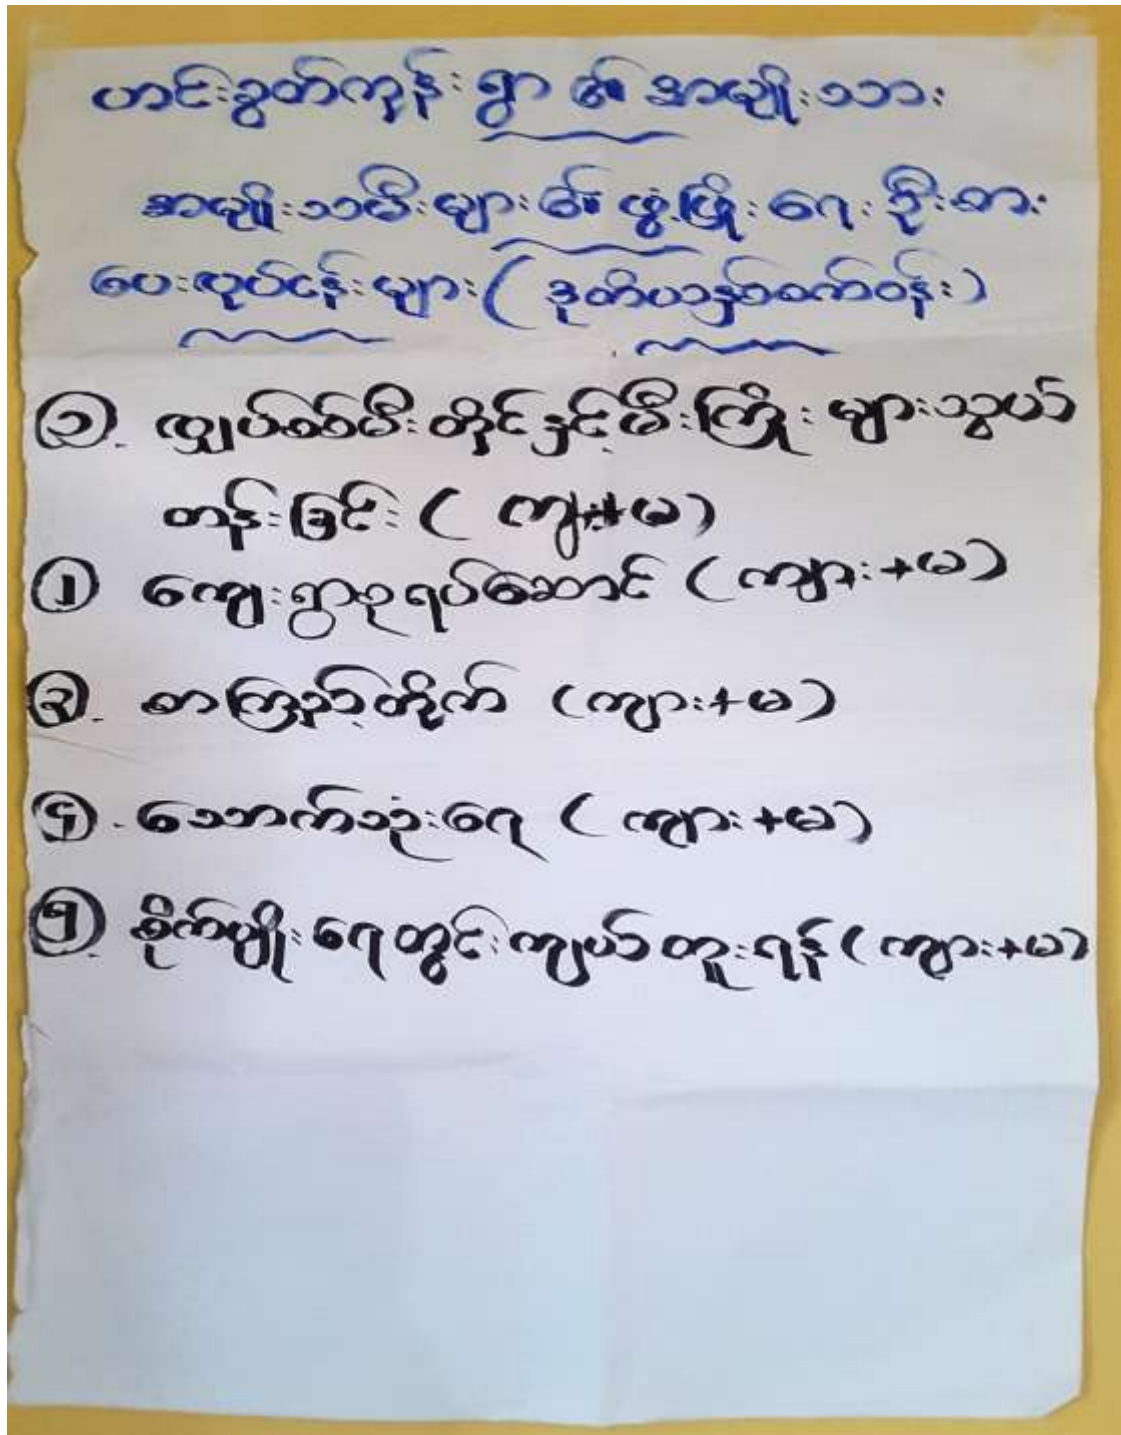 ဟင်းခွတ်ကုန်းရွာ ၏ အမျိုးသား
အမျိုးသမီးများ ၏ ဖွံ့ဖြိုးရေးဦးစား
ပေးလုပ်ငန်းများ ( ဒုတိယနှစ်စက်ဝန်း )
၁. လျှပ်စစ်မီးတိုင်နှင့်မီးကြိုးများသွယ်
တန်းခြင်း ( ကျား+မ )
၂ ကျေးရွာစုရပ်ဆောင် ( ကျား+မ )
၃. စာကြည့်တိုက် ( ကျား+မ )
၄. သောက်သုံးရေ ( ကျား+မ )
၅. စိုက်ပျိုးရေတွင်းကျယ်တူးရန် ( ကျား+မ )